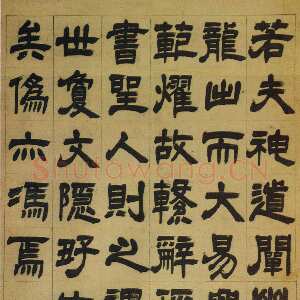 若夫神道闡
龍出而大易興
範耀故繫辭
書聖人則之謂
世夐文隱好生
矣偽亦馮焉
Shufawang.CN